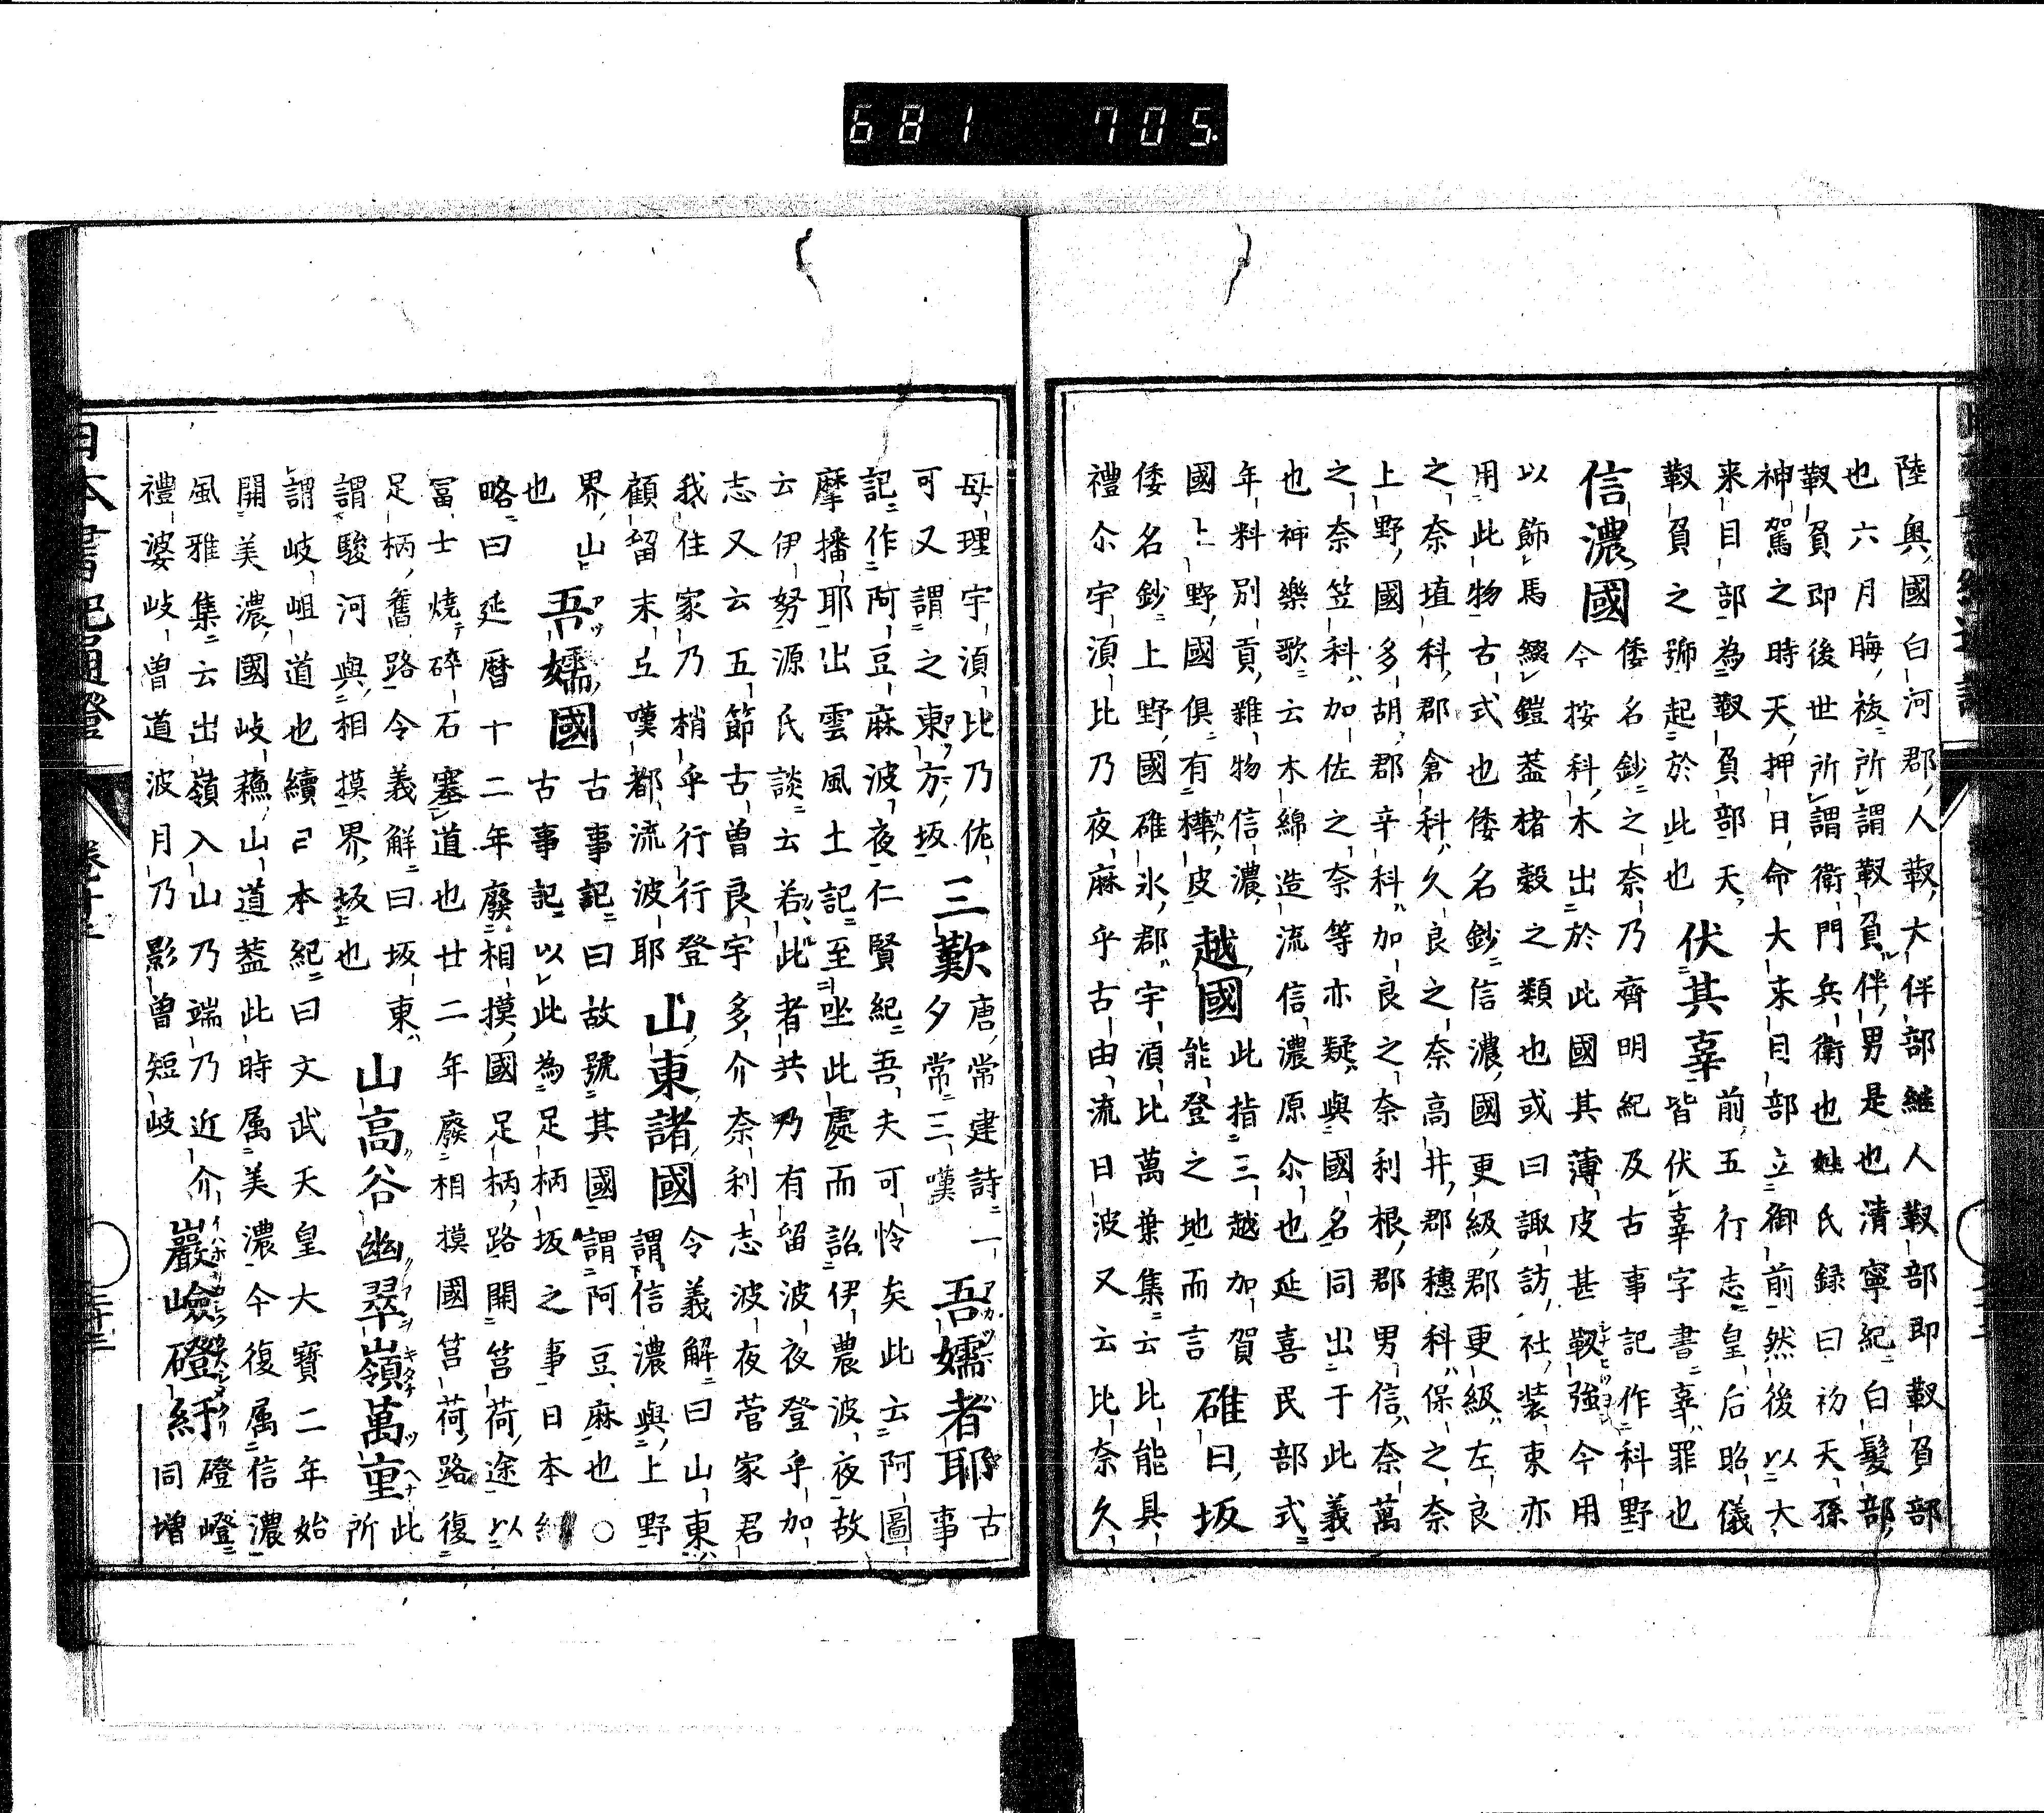 681 705.
陸奥國白河郡人靫大伴部継人靫部即靫負部
也六月晦祓所謂靫負伴男是也清寧紀白髮部
靫負即後世所謂衛門兵衛也姓氏録曰初天孫
神駕之時天押日命大来目部立御前然後以大
来目部為靫負部天
靫負之號起於此也 伏其辜 前五行志皇后昭儀
皆伏辜字書辜罪也
信濃國 倭名鈔之奈乃齊明紀及古事記作科野
今按科木出於此國其薄皮甚靱強今用
以飾馬綴鎧葢楮穀之類也或曰諏訪社装束亦
用此物古式也倭名鈔信濃國更級郡更級左良
之奈埴科郡倉科久良之奈高井郡穗科保之奈
上野國多胡郡辛科加良之奈利根郡男信奈萬
之奈笠科加佐之奈等亦疑與國名同出于此義
也神樂歌云木綿造流信濃原尒也延喜民部式
年料別貢雜物信濃
國上野國俱有樺皮 越國 此指三越加賀
能登之地而言 碓日坂
倭名鈔上野國碓氷郡宇湏比萬葉集云比能具
禮尒宇湏比乃夜麻乎古由流日波又云比奈久
母理宇湏比乃佐
可又謂之東方坂 三歎 唐常建詩一
夕常三嘆 吾嬬者耶 古
事
記作阿豆麻波夜仁賢紀吾夫可怜矣此云阿圖
摩播耶出雲風土記至坐此處而詔伊農波夜故
云伊努源氏談云若此者共乃有留波夜登乎加
志又云五節古曽良宇多介奈利志波夜菅家君
我住家乃梢乎行行登
顧留末亙嘆都流波耶 山東諸國 令義解曰山東
謂信濃與上野
界山
也 吾嬬國 古事記曰故號其國謂阿豆麻也○
古事記以此為足柄坂之事日本紀
略曰延暦十二年廢相摸國足柄路開筥荷途以
冨士燒碎石塞道也廿二年廢相摸國筥荷路復
足柄舊路令義解曰坂東
謂駿河與相摸界坂也 山高谷幽翠嶺萬重 此
所
謂岐岨道也續日本紀曰文武天皇大寶二年始
開美濃國岐蘓山道葢此時属美濃今復属信濃
風雅集云出嶺入山乃端乃近介
禮婆岐曽道波月乃影曽短岐 巖嶮磴紆 磴嶝
同増
日本書紀通證 卷十二 三十三